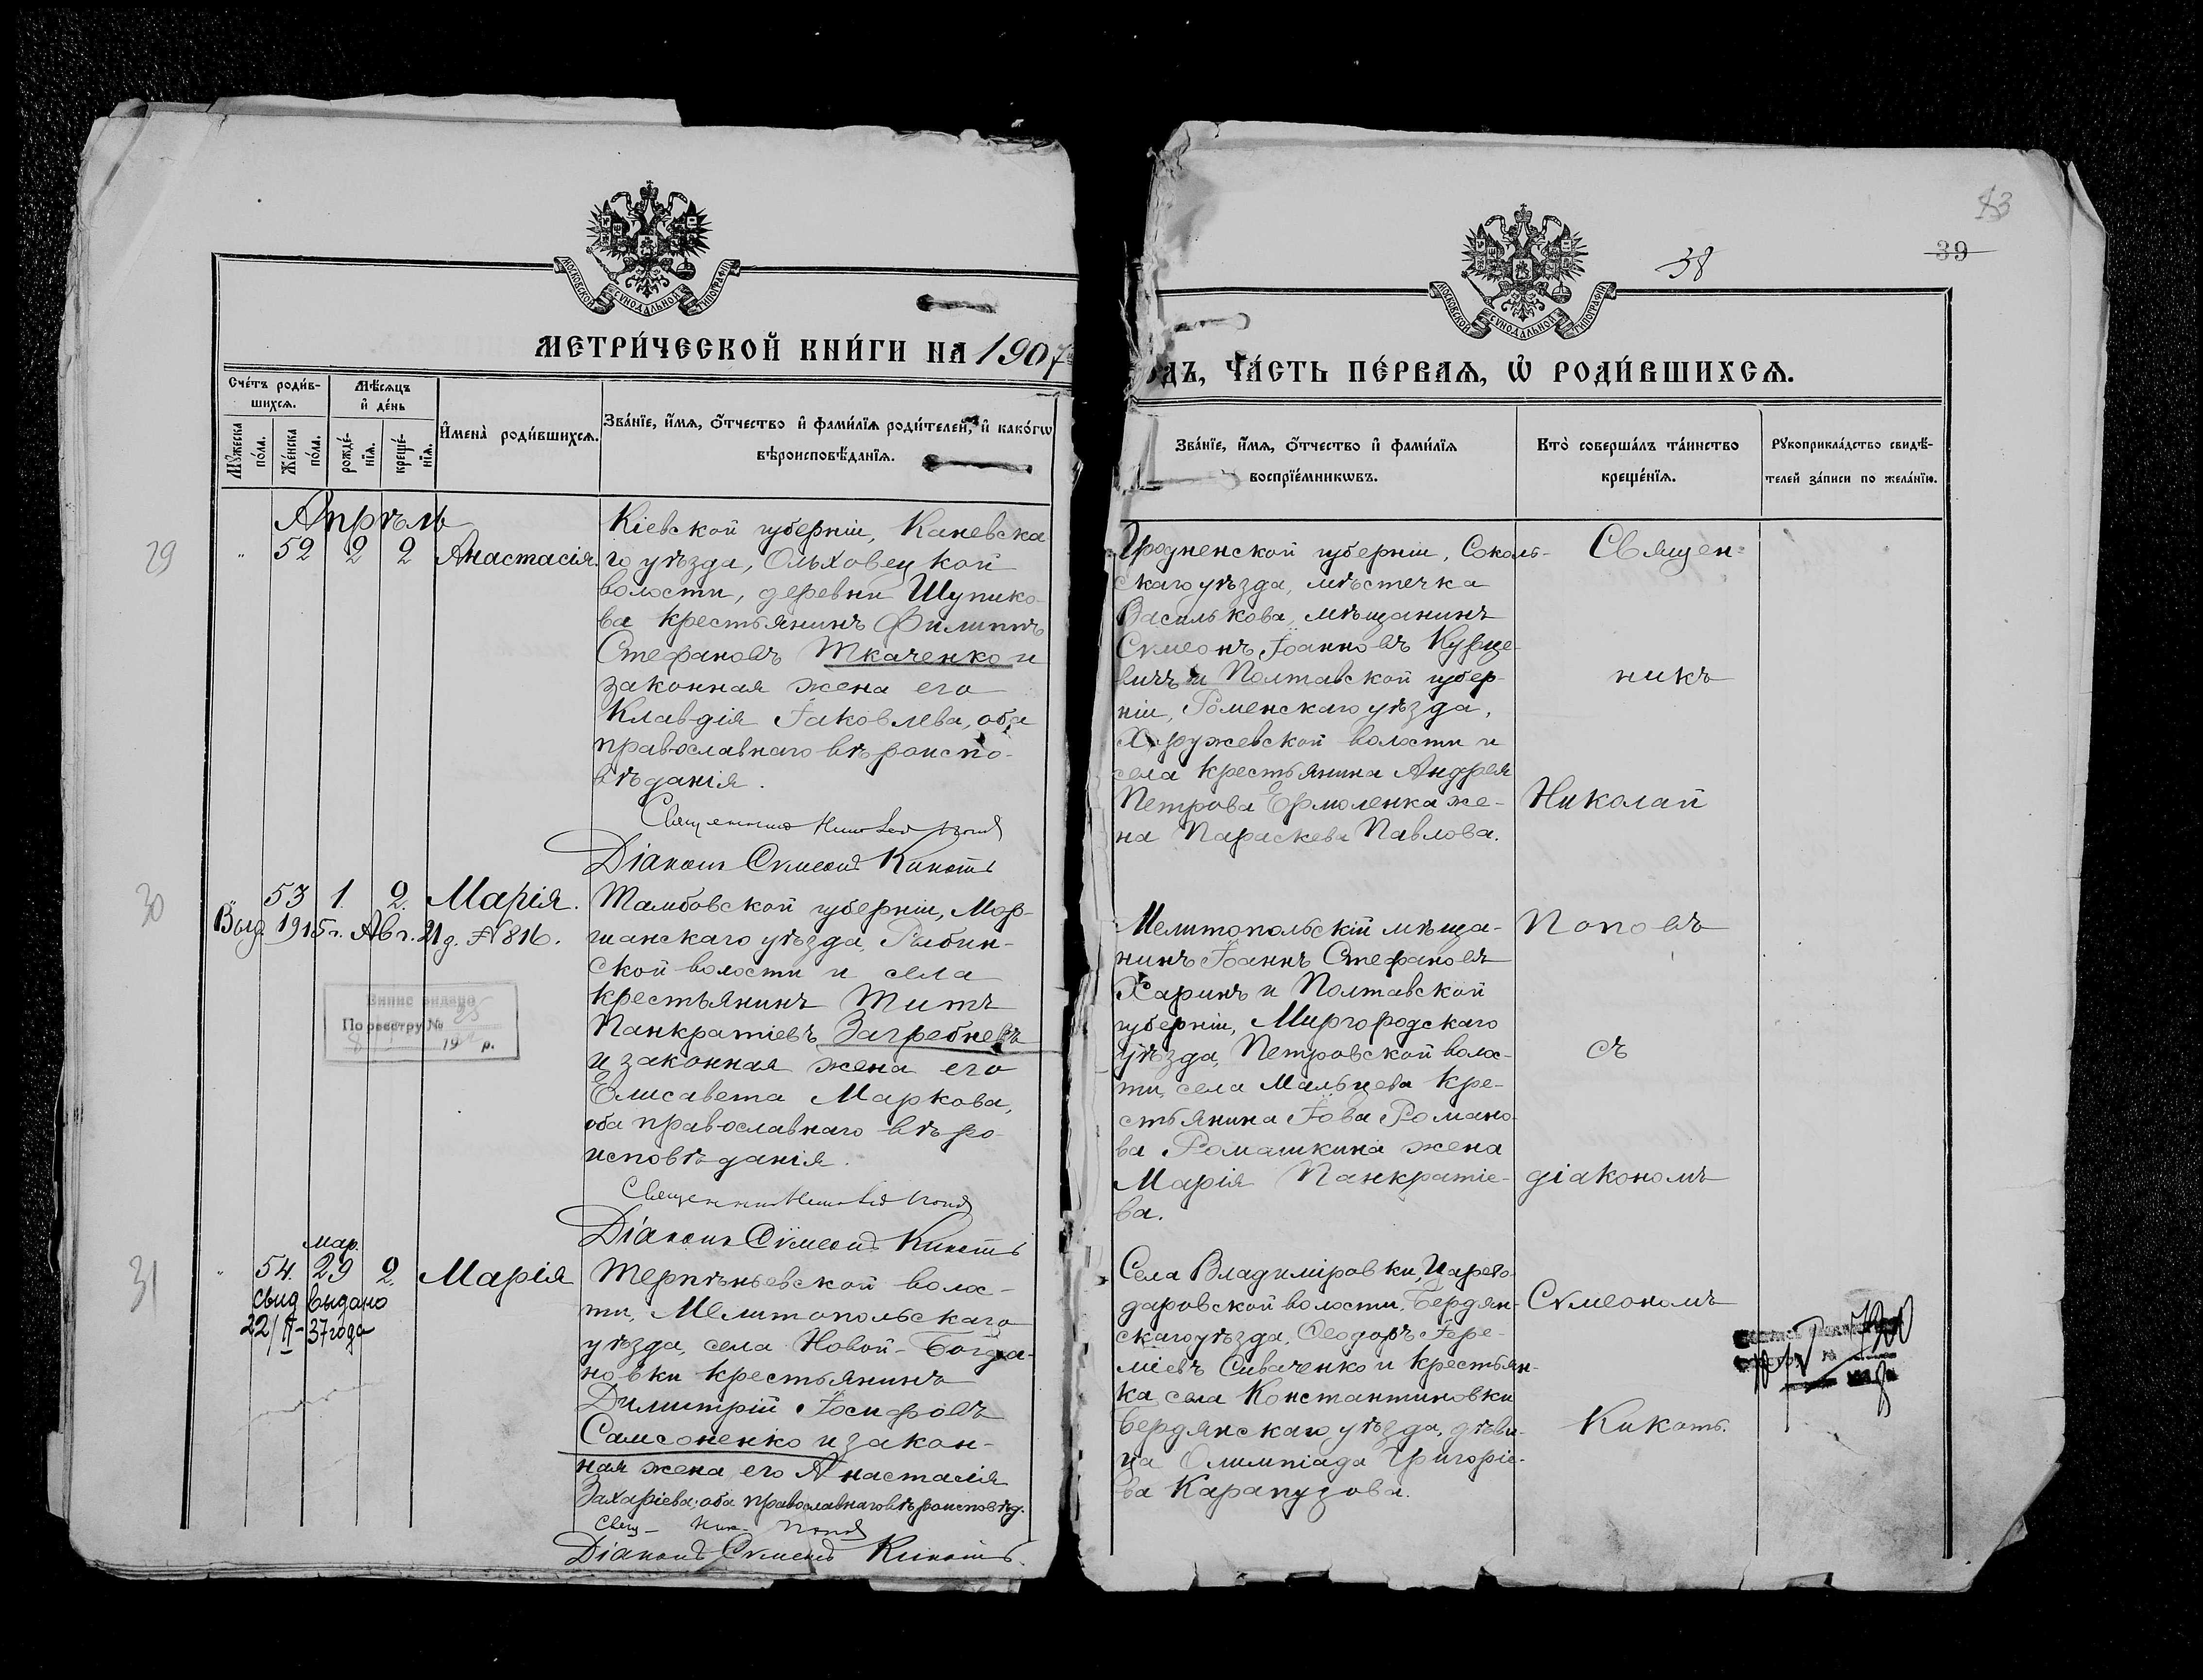 83
38
39
МОСКОВСКОЙ СѴНОДАЛЬНОЙ ТИПОГРАФІИ
МОСКОВСКОЙ СѴНОДАЛЬНОЙ ТИПОГРАФІИ
МЕТРИ́ЧЕСКОЙ КНИ́ГИ НА 1907
ДЪ, ЧА́СТЬ ПЕ́РВАѦ, Ѡ҆ РОДИ́ВШИХСѦ.
Сче́тъ роди́в-
шихсѧ.
Мꙋ́жеска по́ла.
Же́нска по́ла.
Мѣ́сѧцъ
и҆ де́нь
рожде́-
нїѧ.
креще́-
нїѧ.
И҆мена̀ роди́вшихсѧ.
Зва́нїе, и҆́мѧ, ѻ҆́тчество и҆ фами́лїѧ роди́телей, и҆ како́гѡ
вѣроисповѣ́данїѧ.
Зва́нїе, и҆́мѧ, ѻ҆́тчество и҆ фами́лїѧ
воспрїе́мникѡвъ.
Кто̀ соверша́лъ та́инство
креще́нїѧ.
Рꙋкоприкла́дство свидѣ́-
телей за́писи по жела́нїю.
Апрѣль
29
„ 52 2 2 Анастасія.
Кіевской губерніи, Каневска
го уѣзда, Ольховецкой
волости, деревни Шупико-
ва крестьянинъ Филиппъ
Стефановъ Ткаченко и
законная жена его
Клавдія Іаковлева, оба
православнаго вѣроиспо-
вѣданія.
Священникъ Николай Поповъ
Діаконъ Сѵмеонъ Кикоть
Гродненской губерніи, Соколь-
скаго уѣзда, мѣстечка
Василькова, мѣщанинъ
Сѵмеонъ Іоанновъ
вичъ и Полтавской губер-
ніи, Роменскаго уѣзда,
Хоружевской волости и
села крестьянина Андрея
Петрова Ермоленка же-
на Параскева Павлова.
Священ-
никъ
Николай
30
53 1. 2. Марія.
Выд. 1915 г. Авг. 21 д. № 816.
Випис видано
По реестру № 25
8 19 р.
Тамбовской губерніи, Мор-
шанскаго уѣзда, Рыбин-
ской волости и села
крестьянинъ Титъ
Панкратіевъ Загребневъ
и законная жена его
Елисавета Маркова,
оба православнаго вѣро-
исповѣданія.
Священникъ Николай Поповъ
Діаконъ Сѵмеонъ Кикоть
Мелитопольскій мѣща-
нинъ Іоаннъ Стефановъ
Харинъ и Полтавской
губерніи, Миргородскаго
уѣзда, Петровской волос-
ти, села Мальцева кре-
стьянина Іова Романо-
ва Ромашкина жена
Марія Панкратіе-
ва.
Поповъ
съ
діакономъ
31
мар.
„ 54. 29 2. Марія
свид выдано
22/II-37 года
Терпѣньевской волос-
ти, Мелитопольскаго
уѣзда, села Новой-Богда-
новки крестьянинъ
Димитрій Іосифовъ
Самсоненко и закон-
ная жена его Анастасія
Захаріева, оба православнаго вѣроисповѣд.
Свящ- Ник- Поповъ
Діаконъ Сѵмеонъ Кикоть.
Села Владиміровки, Царево-
даровской волости, Бердян-
скаго уѣзда, Ѳеодоръ Іере-
міевъ Сиваченко и крестьян-
ка села Константиновки
Бердянскаго уѣзда, дѣви-
ца Олимпіада Григоріе-
ва Карапузова.
Сѵмеономъ
Кикоть.